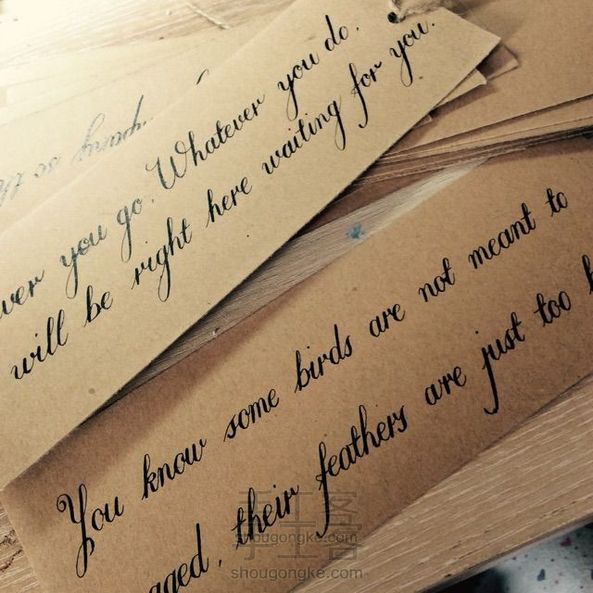 ver you go. Whatever you do.
will be right here waiting for you.
You know some birds are not meant to
aged, their feathers are just too
手工客
shougongke.com
shougongke.com